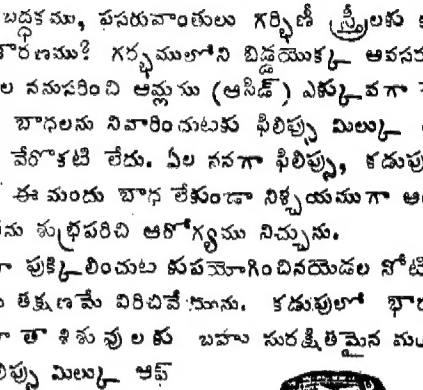 బద్ధకము, పసరువాంతులు గర్భిణీ స్త్రీలకు
కారణము? గర్భములోని బిడ్డయొక్క ఆవసర
ల ననుసరించి ఆమ్లము (ఆసిడ్) ఎక్కువగా
బాధలను నివారించుటకు ఫిలిప్సు మిల్కు
వేరొకటి లేదు. ఏల ననగా ఫిలిప్సు, కడుపు
ఈ మందు బాధ లేకుండా నిశ్చయముగా ఆ
ను శుభ్రపరిచి ఆరోగ్యము నిచ్చును.
పుక్కిలించుట కుపయోగించినయెడల నోటి
తక్షణమే విరిచివేయును. కడుపులో భా
తా శిశువులకు బహు సురక్షితమైన మం
లిప్సు మిల్కు ఆఫ్